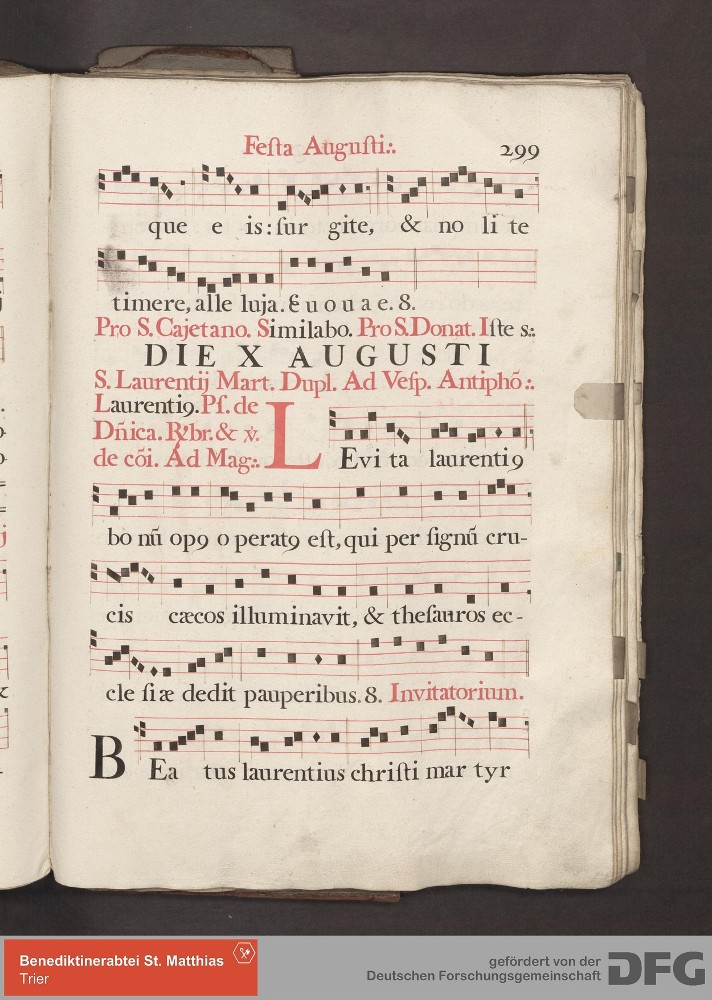 Festa Augusti:.
299
que e is: sur gite, & no li te
timere, alle luja. E u o u a e. 8.
Pro S. Cajetano. Similabo. Pro S. Donat. Iste s:.
DIE X AUGUSTI
S. Laurentij Mart. Dupl. Ad Vesp. Antiphõ:.
Laurentiꝯ. Ps. de
Dñica. R/. br. & v/.
de cõi. Ad Mag:.
LEvi ta laurentiꝯ
bo nũ opꝯ o peratꝯ est, qui per signũ cru-
cis cæcos illuminavit, & thesauros ec-
cle si æ dedit pauperibus. 8. Invitatorium.
BEa tus laurentius christi mar tyr
Benediktinerabtei St. Matthias
Trier
gefördert von der
Deutschen Forschungsgemeinschaft
DFG